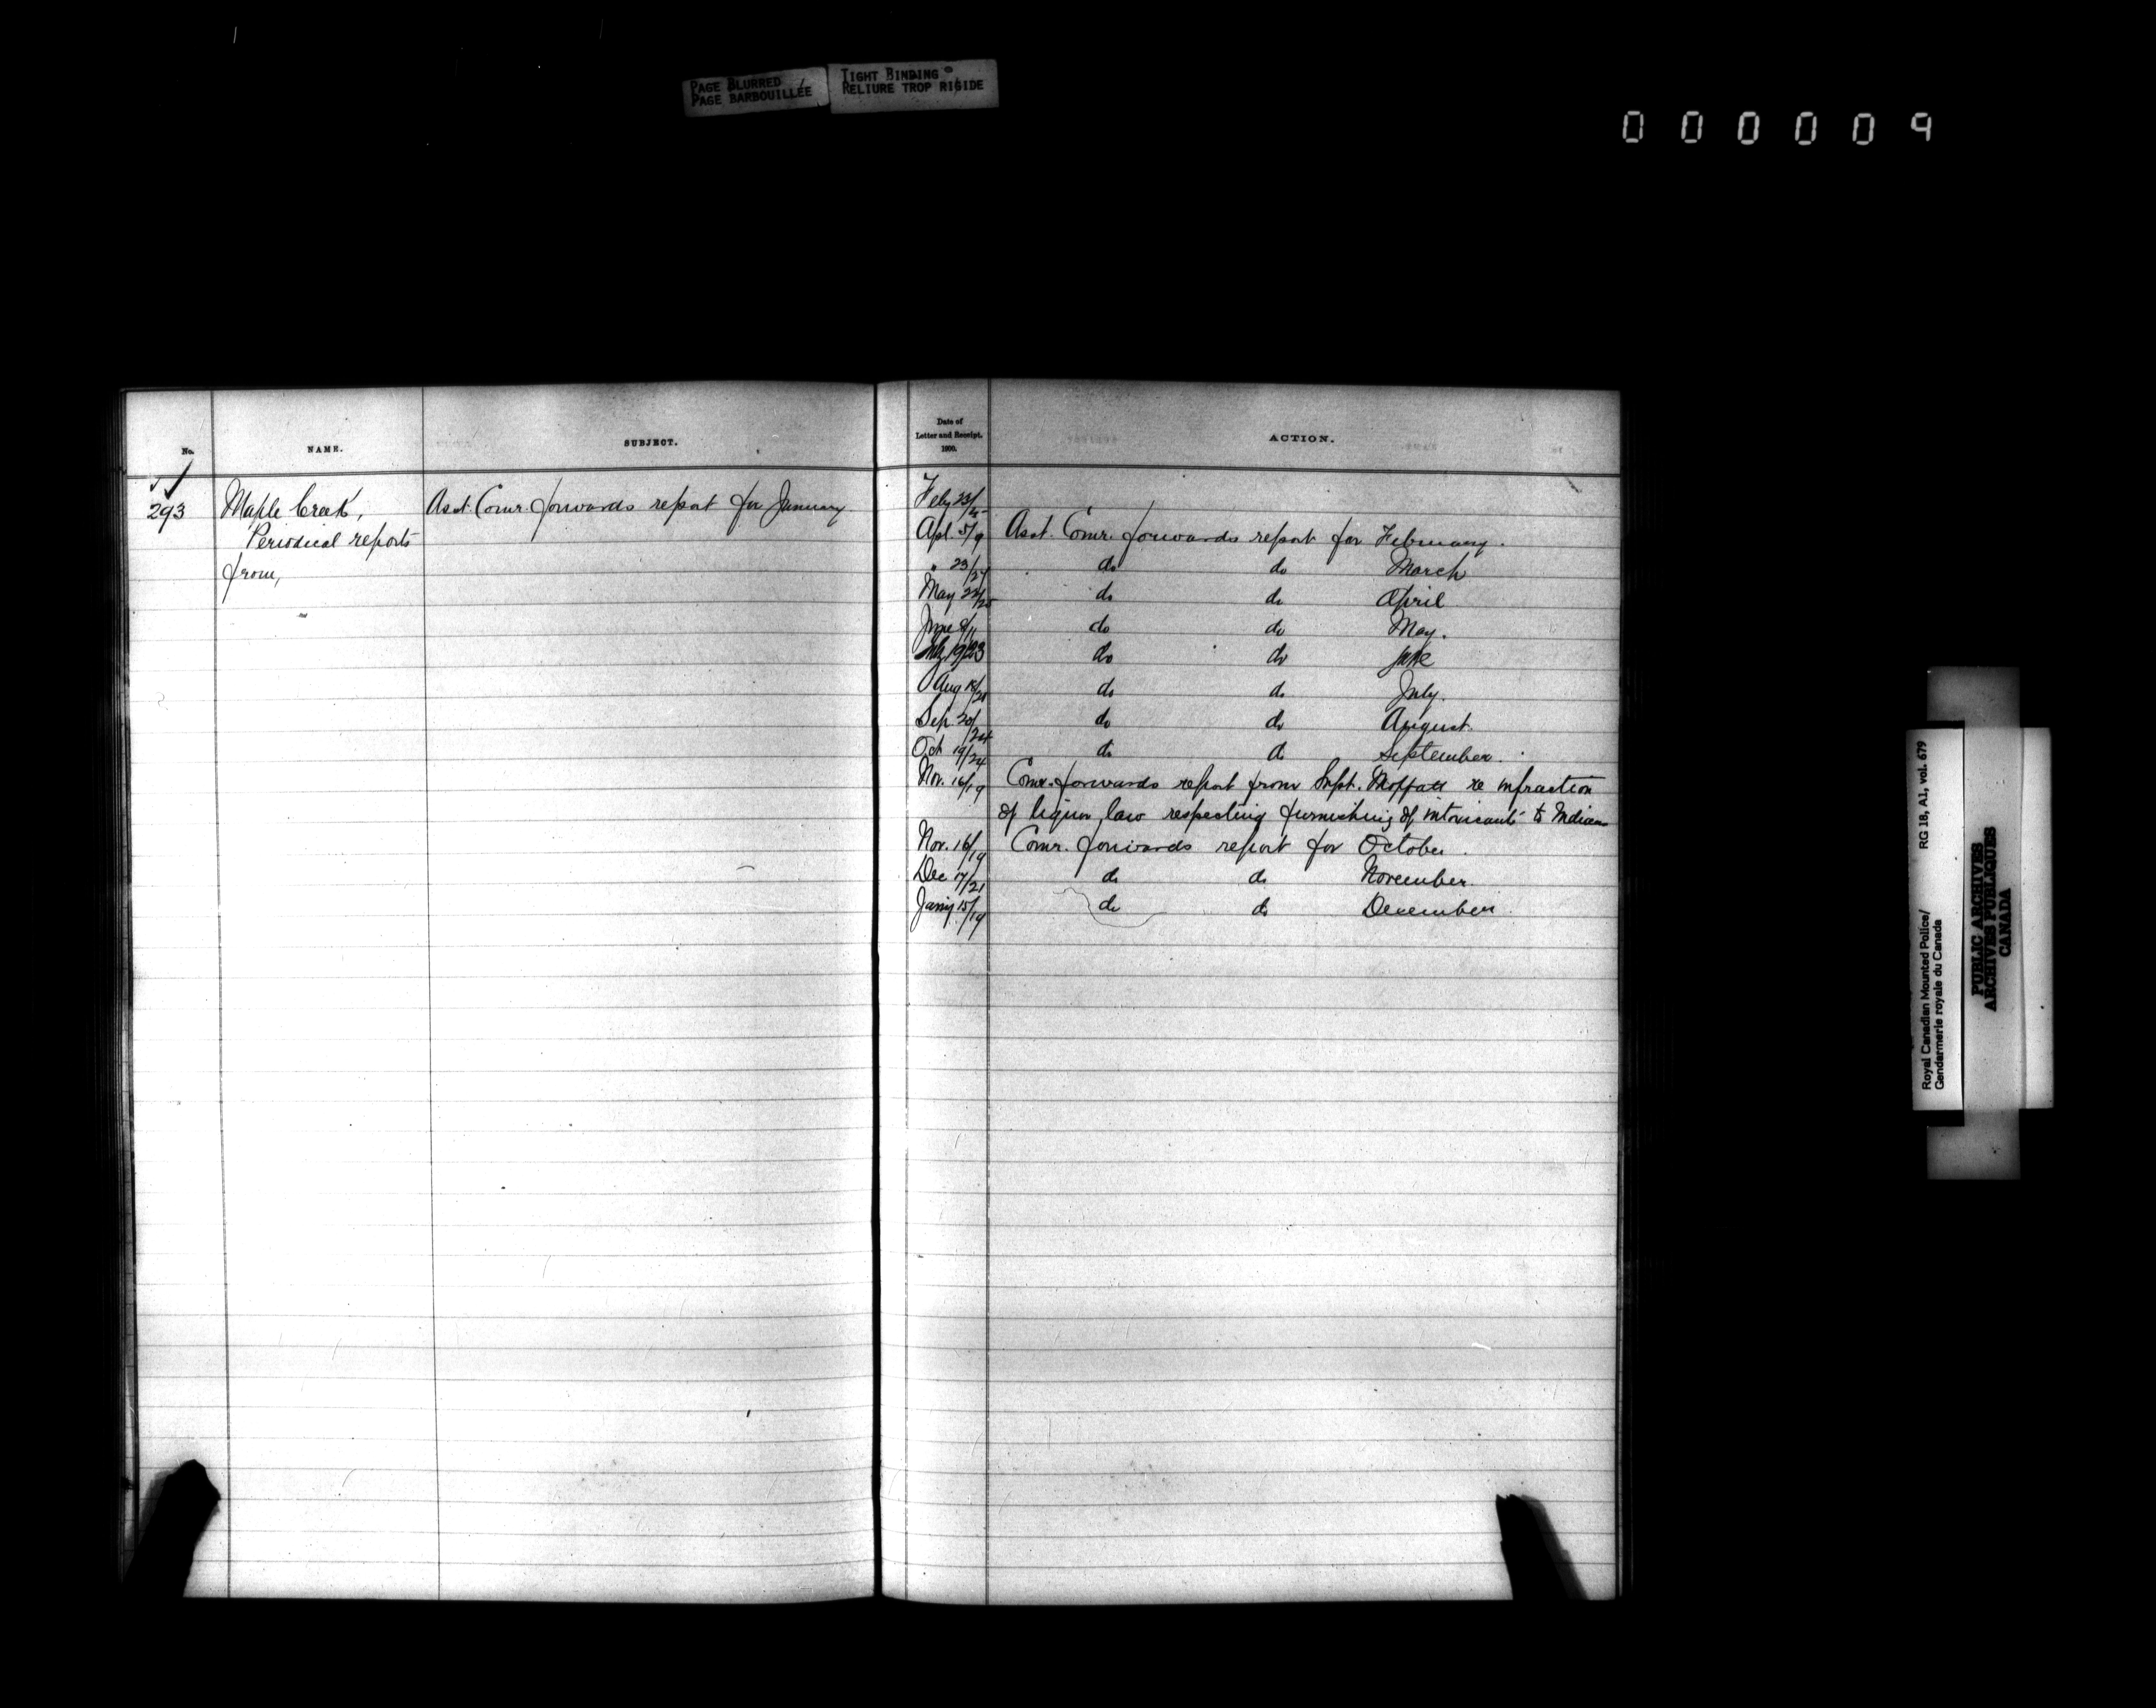 PAGE BLURRED
PAGE BARBOUILLÉE
TIGHT BINDING
RELIURE TROP RIGIDE
000009
No.
NAME.
SUBJECT.
Date of
Letter and Receipt.
1900.
ACTION.
293
Maple Creek,
Periodical reports
from,
Asst. Comr. forwards report for January
Feby 23/
Apl. 5/9 Asst. Comr. forwards report for February.
" 23/27 do do March
May 22/25 do do April
June 8/11 do do May.
July 19/23 do do June
Aug 18/21 do do July.
Sep. 20/24 do do August.
Oct 19/24 do do September.
Nov. 16/19 Comr. forwards report from Supt. Moffatt re infraction
of liquor law respecting furnishing of intoxicants to Indians
Nov. 16/19 Comr. forwards report for October.
Dec 17/21 do do November.
Jany 15/19 do do December.
Royal Canadian Mounted Police/ RG 18, A1, vol. 679
Gendarmerie royale du Canada
PUBLIC ARCHIVES
ARCHIVES PUBLIQUES
CANADA